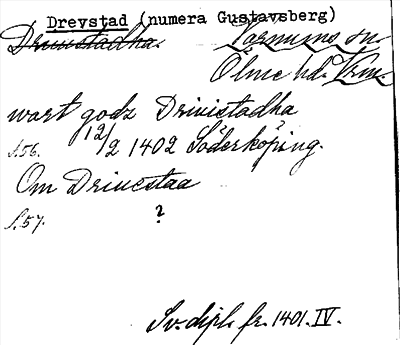 Drevstad (numera Gustavsberg)
Driuistadha. Varnums sn.
Ölme hd. Vrm.
wart godz Driuistadha
s.56. 12/2 1402 Söderköping.
Om Driuestaa
s.57. ?
Sv. dipl. fr. 1401. IV.